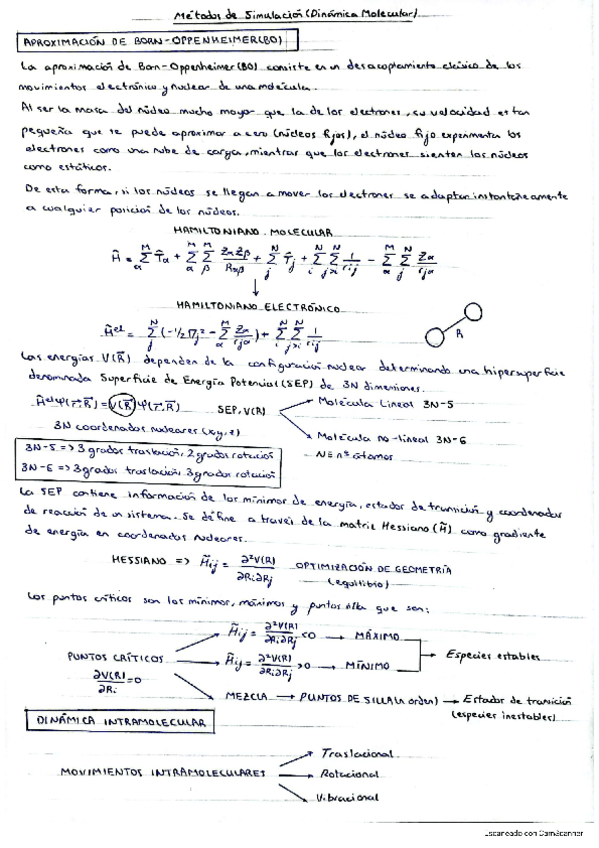 Métodos de Simulación (Dinámica Molecular)
APROXIMACIÓN DE BORN-OPPENHEIMER (BO)
La aproximación de Born-Oppenheimer (BO) consiste en un desacoplamiento clásico de los
movimientos electrónico y nuclear de una molécula.
Al ser la masa del núcleo mucho mayor que la de los electrones, su velocidad es tan
pequeña que se puede aproximar a cero (núcleos fijos), el núcleo fijo experimenta los
electrones como una nube de carga, mientras que los electrones sienten los núcleos
como estáticos.
De esta forma, si los núcleos se llegan a mover los electrones se adaptan instantáneamente
a cualquier posición de los núcleos.
HAMILTONIANO MOLECULAR
Ĥ = Σ_α^M T̂α + Σ_α^M Σ_β^M ZαZβ/Rαβ + Σ_j^N T̂j + Σ_i^N Σ_{j>i}^N 1/rij − Σ_α^M Σ_j^N Zα/rjα
HAMILTONIANO ELECTRÓNICO
Ĥel = Σ_j^N (-1/2 ∇j² − Σ_α^M Zα/rjα) + Σ_i^N Σ_{j>i}^N 1/rij
R
Las energías V(R) dependen de la configuración nuclear determinando una hipersuperficie
denominada Superficie de Energía Potencial (SEP) de 3N dimensiones.
Ĥel ψ(r,R) = V(R) ψ(r,R) SEP, V(R) Molécula Lineal 3N-5
3N coordenadas nucleares (x,y,z) Molécula no-lineal 3N-6
N≡nº átomos
3N-5 => 3 grados traslación, 2 grados rotación
3N-6 => 3 grados traslación, 3 grados rotación
La SEP contiene información de los mínimos de energía, estados de transición y coordenadas
de reacción de un sistema. Se define a través de la matriz Hessiano (H̃) como gradiente
de energía en coordenadas nucleares.
HESSIANO => H̃ij = ∂²V(R)/∂Ri∂Rj OPTIMIZACIÓN DE GEOMETRÍA
(equilibrio)
Los puntos críticos son los mínimos, máximos y puntos silla que son:
H̃ij = ∂²V(R)/∂Ri∂Rj <0 → MÁXIMO
PUNTOS CRÍTICOS H̃ij = ∂²V(R)/∂Ri∂Rj >0 → MÍNIMO Especies estables
∂V(R)/∂Ri = 0
MEZCLA → PUNTOS DE SILLA (n orden) → Estados de transición
(especies inestables)
DINÁMICA INTRAMOLECULAR
Traslacional
MOVIMIENTOS INTRAMOLECULARES Rotacional
Vibracional
Escaneado con CamScanner